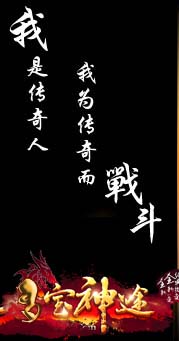 我是传奇人
我为传奇而
戰斗
多宝神途